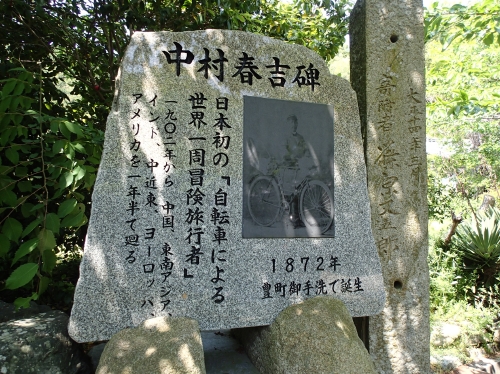 中村春吉碑
日本初の「自転車による
世界一周冒険旅行者」
一九〇二年から中国、東南アジア、
インド、中近東、ヨーロッパ、
アメリカを一年半で廻る
1872年
豊町御手洗で誕生